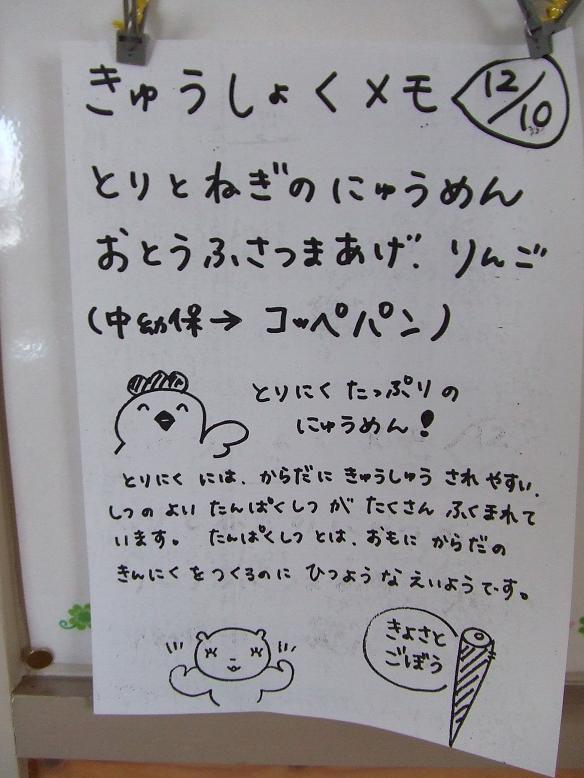 きゅうしょくメモ 12/10
とりとねぎのにゅうめん
おとうふさつまあげ. りんご
(中幼保→ コッペパン)
とりにく たっぷりの
にゅうめん!
とりにく には、からだに きゅうしゅう されやすい、
しつの よい たんぱくしつ が たくさん ふくまれて
います。 たんぱくしつ とは、おもに からだの
きんにくをつくるのに ひつような えいようです。
きよさと
ごぼう